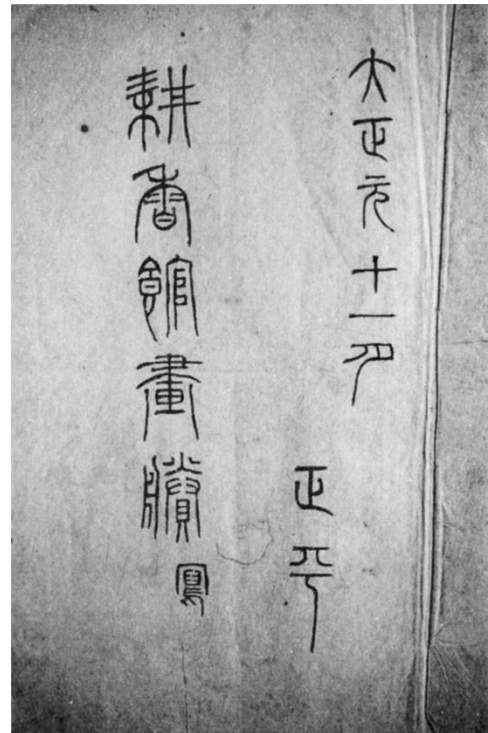 大正元十一月
正平
耕香館畫賸
寫